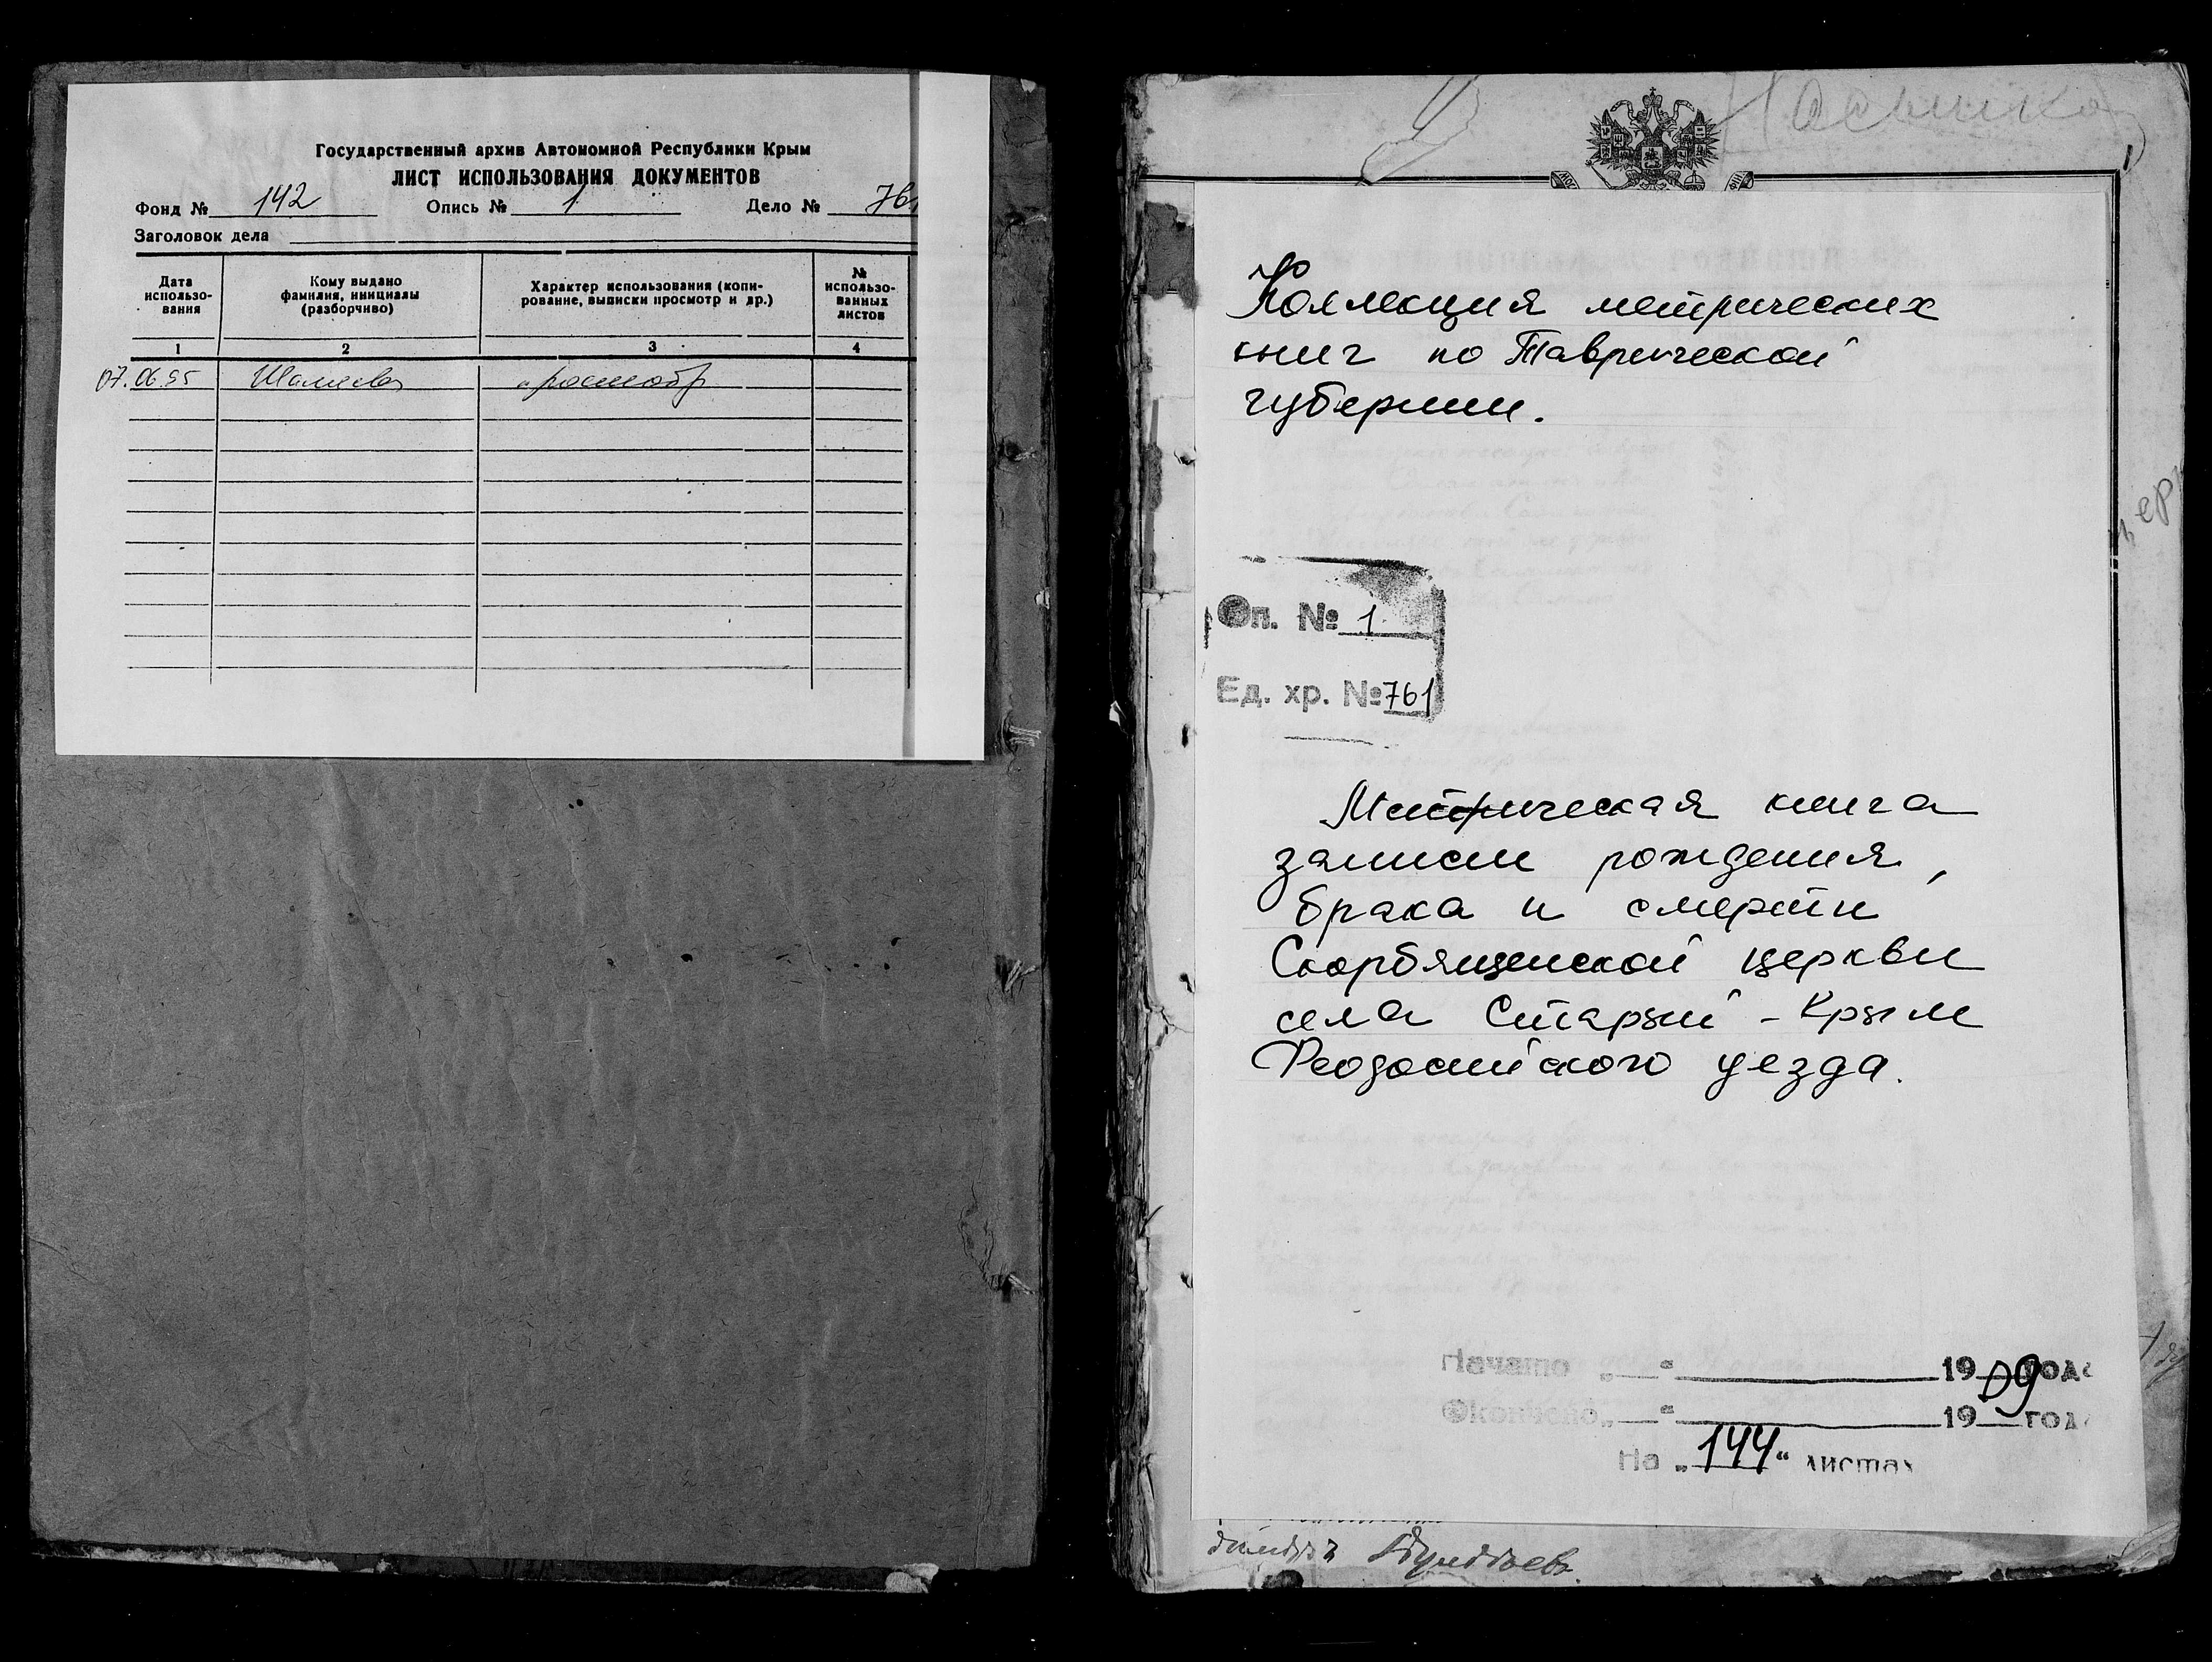 Государственный архив Автономной Республики Крым
ЛИСТ ИСПОЛЬЗОВАНИЯ ДОКУМЕНТОВ
Фонд № 142 Опись № 1 Дело № 761
Заголовок дела
Дата использо-вания
Кому выдано фамилия, инициалы (разборчиво)
Характер использования (копи-рование, выписки просмотр и др.)
№ использо-ванных листов
1 2 3 4
07.06.95
Коллекция метрических
книг по Таврической
губернии.
Оп. № 1
Ед. хр. № 761
Метрическая книга
записи рождения,
брака и смерти
Скорбященской церкви
села Старый-Крым
Феодосийского уезда.
Начато „ " 1909 года
Окончено „ " 19 года
На „144" листах